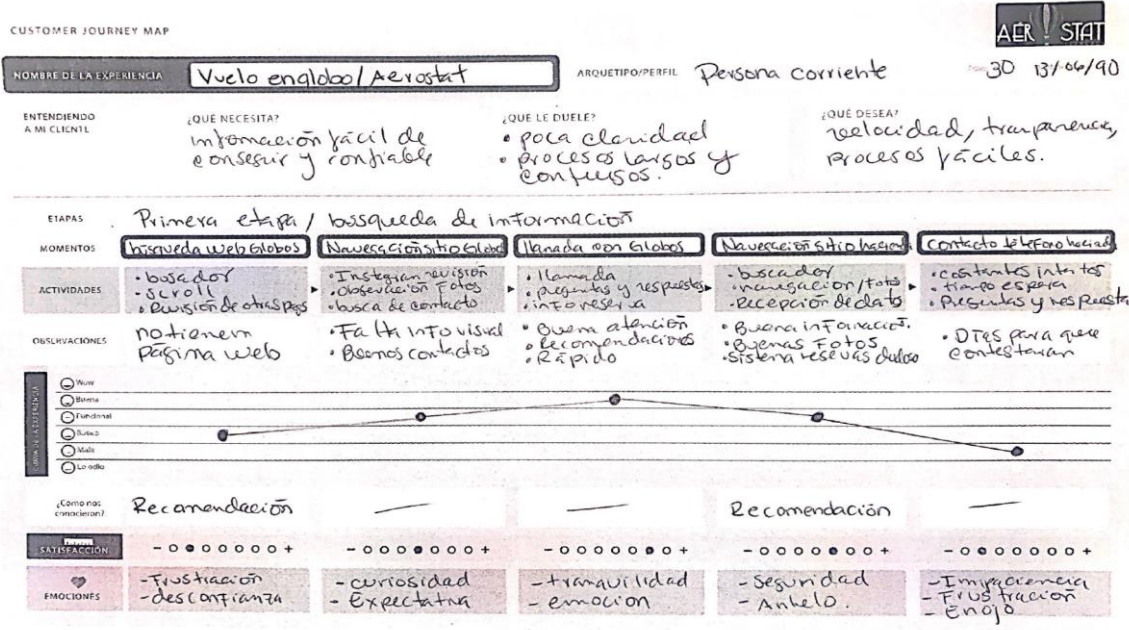 CUSTOMER JOURNEY MAP
AÉR STAT
NOMBRE DE LA EXPERIENCIA
Vuelo englobo/Aerostat
ARQUETIPO/PERFIL
Persona corriente
30
ENTENDIENDO
A MI CLIENTE
¿QUÉ NECESITA?
información fácil de
conseguir y confiable
¿QUÉ LE DUELE?
• poca claridad
• procesos largos y
confusos.
¿QUÉ DESEA?
velocidad, tranparencia,
procesos fáciles.
ETAPAS
Primera etapa / busqueda de información
MOMENTOS
busqueda web Globos
Navegación sitio Globo
llamada con Globos
Navegación sitio hacien
Contacto teléfono haciad
ACTIVIDADES
• buscador
• scroll
• Revisión de otras pags
• Instagran revisión
• Observación Fotos
• busca de contacto
• llamada
• preguntas y respuestas
• info reserva
• buscador
• navegación/foto
• Recepción de dato
• constantes intentos
• tiempo espera
• Preguntas y respuesta
OBSERVACIONES
no tienen
página web
• Falta info visual
• Buenos contactos
• Buena atención
• Recomendaciones
• Rápido
• Buena informació.
• Buenas Fotos
• Sistema resevas
• Días para que
contestaran
CURVA DE LA EXPERIENCIA
Wow
Buena
Funcional
Mala
Lo odio
¿Cómo nos
conocieron?
Recomendación
—
—
Recomendación
—
SATISFACCIÓN
- o • o o o o o +
- o o o • o o o +
- o o o o o • o +
- o o o o • o o +
- o • o o o o o +
EMOCIONES
- Frustración
- desconfianza
- curiosidad
- Expectativa
- tranquilidad
- emoción
- Seguridad
- Anhelo.
- Impaciencia
- Frustración
- Enojo